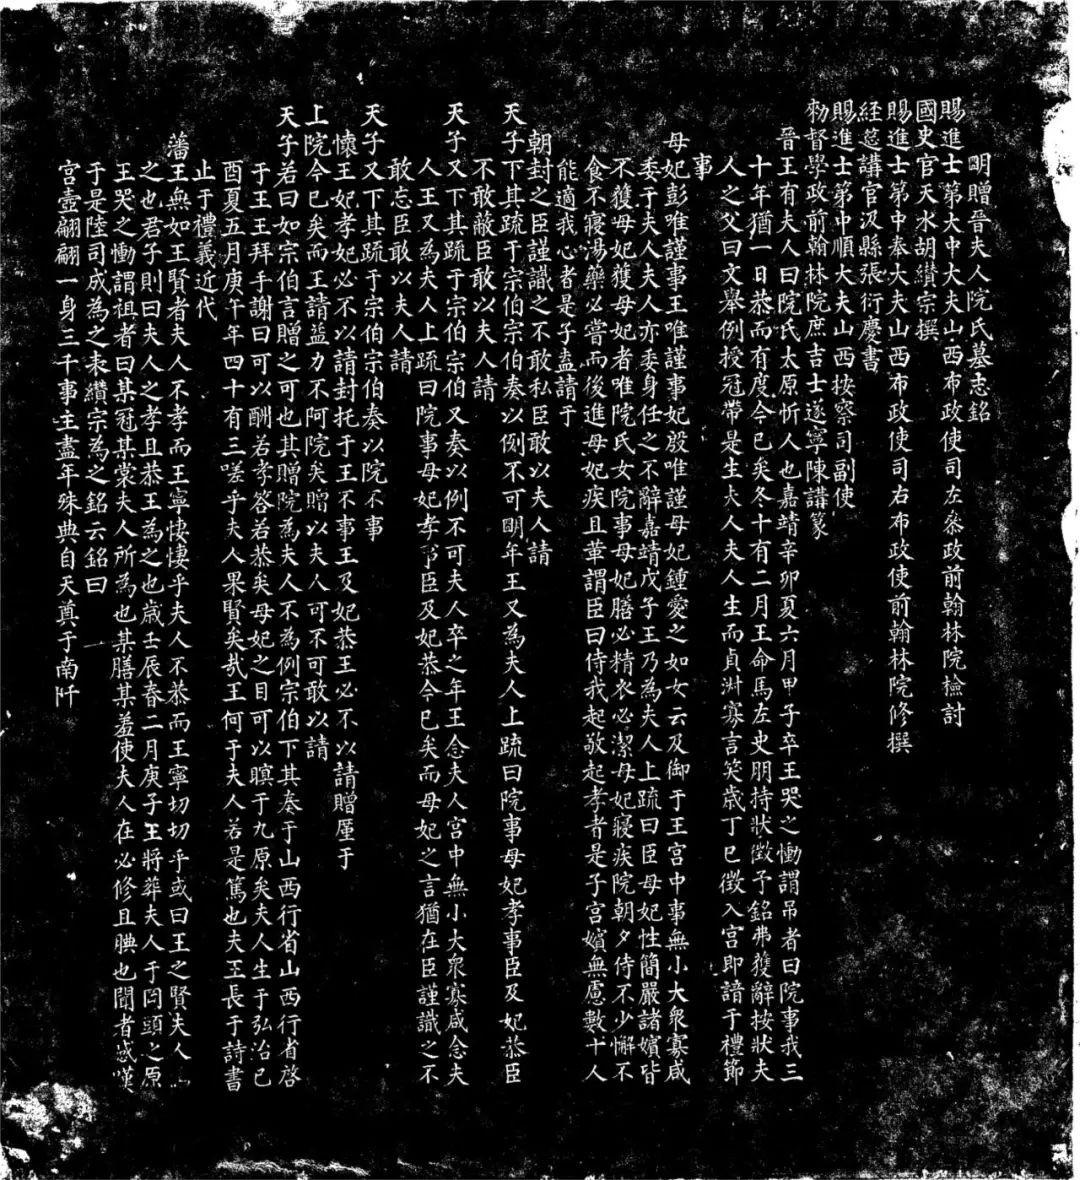 明贈晉夫人院氏墓志銘
賜進士第大中大夫山西布政使司左叅政前翰林院檢討
國史官天水胡纘宗撰
賜進士第中奉大夫山西布政使司右布政使前翰林院修撰
経莚講官汲縣張衍慶書
賜進士第中順大夫山西按察司副使
勑督學政前翰林院庶吉士遂寧陳講篆
晉王有夫人曰院氏太原忻人也嘉靖辛卯夏六月甲子卒王哭之慟謂吊者曰院事我三
十年猶一日恭而有度今已矣冬十有二月王命馬左史朋持狀徵予銘弗獲辭按狀夫
人之父曰文舉例授冠帶是生夫人夫人生而貞淑寡言笑歲丁巳徵入宮即諳于禮節
事
母妃彭唯謹事王唯謹事妃殷唯謹母妃鍾愛之如女云及御于王宮中事無小大衆寡咸
委于夫人夫人亦委身任之不辭嘉靖戊子王乃為夫人上疏曰臣母妃性簡嚴諸嬪皆
不獲母妃獲母妃者唯院氏女院事母妃膳必精衣必潔母妃寢疾院朝夕侍不少懈不
食不寢湯藥必嘗而後進母妃疾且革謂臣曰侍我起敬起孝者是子宮嬪無慮數十人
能適我心者是子盍請于
朝封之臣謹識之不敢私臣敢以夫人請
天子下其疏于宗伯宗伯奏以例不可明年王又為夫人上疏曰院事母妃孝事臣及妃恭臣
不敢蔽臣敢以夫人請
天子又下其疏于宗伯宗伯又奏以例不可夫人卒之年王念夫人宮中無小大衆寡咸念夫
人王又為夫人上疏曰院事母妃孝事臣及妃恭今已矣而母妃之言猶在臣謹識之不
敢忘臣敢以夫人請
天子又下其疏于宗伯宗伯奏以院不事
懷王妃孝妃必不以請封托于王不事王及妃恭王必不以請贈厪于
上院今已矣而王請益力不阿院矣贈以夫人可不可敢以請
天子若曰如宗伯言贈之可也其贈院為夫人不為例宗伯下其奏于山西行省山西行省啓
于王王拜手謝曰可以酬若孝答若恭矣母妃之目可以瞑于九原矣夫人生于弘治己
酉夏五月庚午年四十有三嗟乎夫人果賢矣哉王何于夫人若是篤也夫王長于詩書
止于禮義近代
藩王無如王賢者夫人不孝而王寧悽悽乎夫人不恭而王寧切切乎或曰王之賢夫人
之也君子則曰夫人之孝且恭王為之也歲壬辰春二月庚子王將葬夫人于冋頭之原
王哭之慟謂祖者曰某冠某棠夫人所為也某膳某羞使夫人在必修且腆也聞者感嘆
于是陸司成為之耒纘宗為之銘云銘曰
宮壼翩翩一身三千事主盡年殊典自天奠于南阡